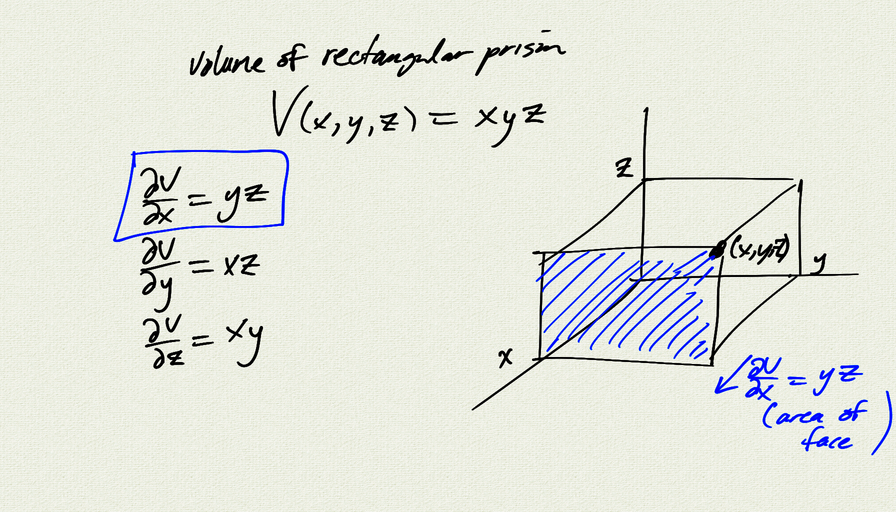 Volume of rectangular prism
V(x, y, z) = xyz
∂V/∂x = yz
∂V/∂y = xz
∂V/∂z = xy
z
(x,y,z)
y
x
∂V/∂x = yz
(area of
face)